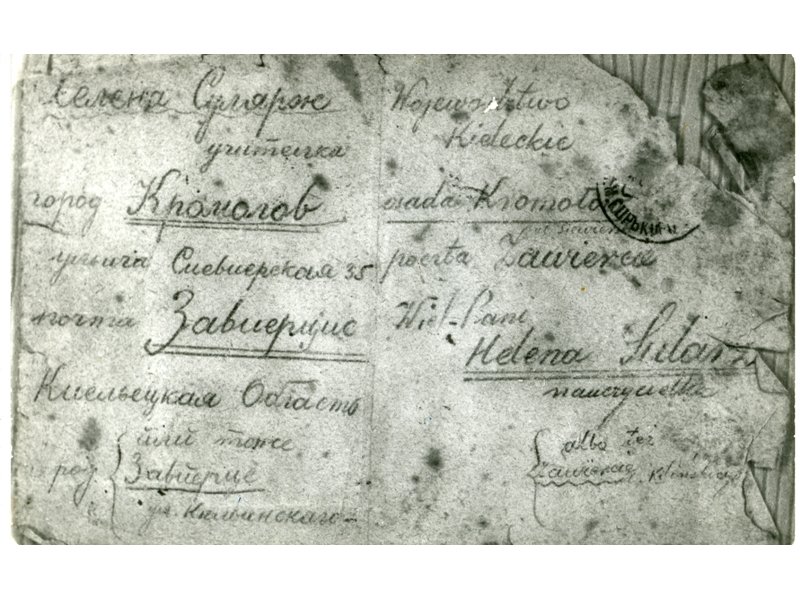 Хелена Сулярж
учителка
город Кромолов
улица Сиевиерская 35
почта Завиерцие
Киельецкая Область
или тоже
Завиерце
ул.
Województwo
Kieleckie
osada Kromoło
poczta Zawiercie
Wiel-Pani
Helena Sularz
nauczycielka
albo też
Zawiercie,